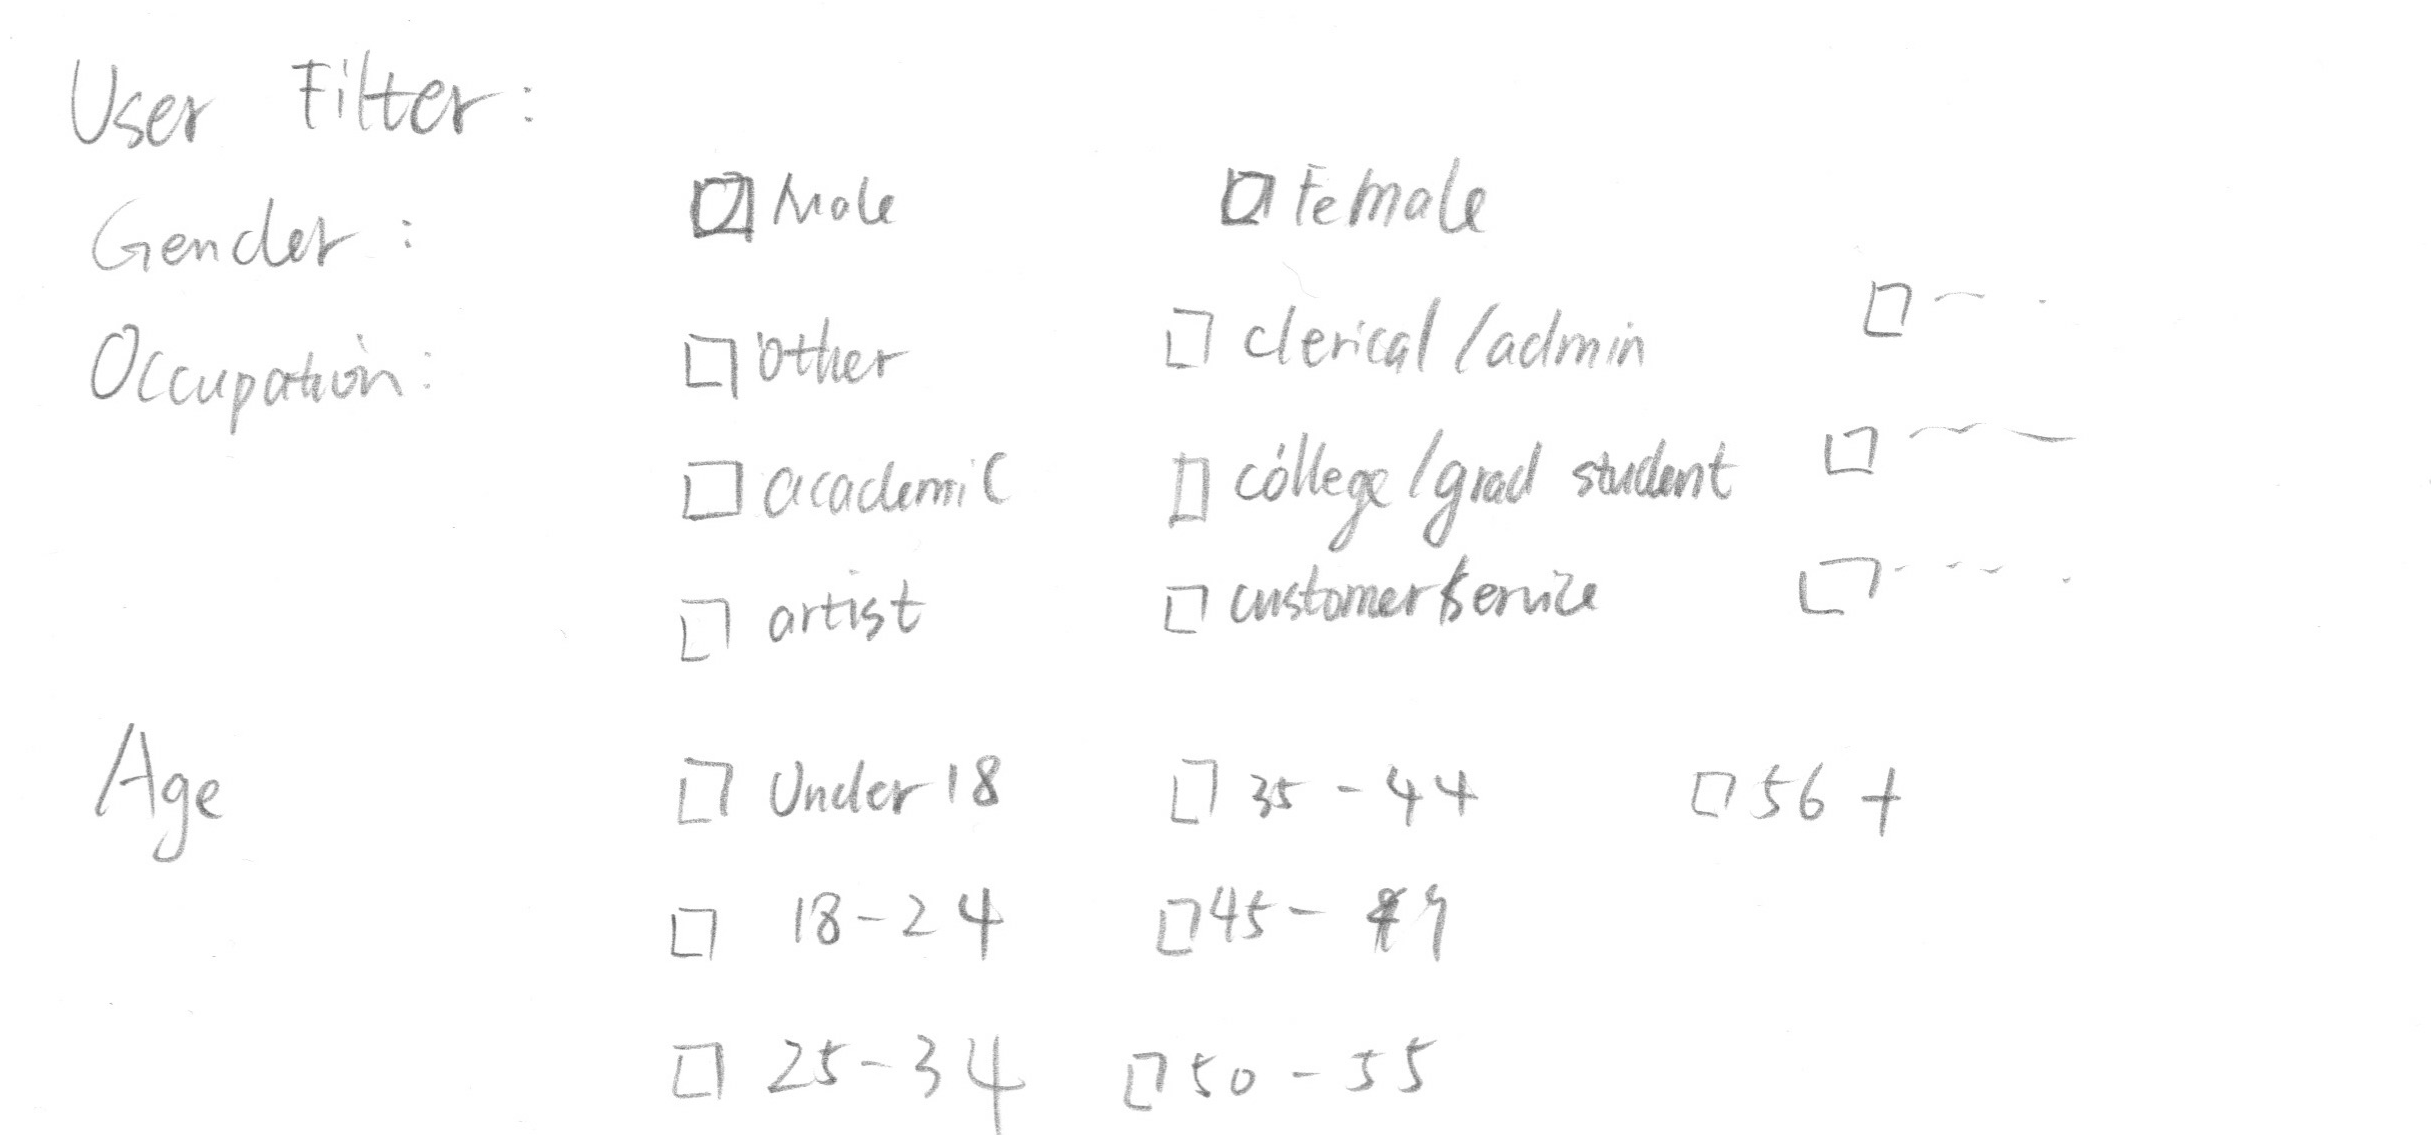 User Filter:
Gender: Male Female
Occupation: other clerical/admin
academic college/grad student
artist customer/service
Age Under 18 35-44 56+
18-24 45-49
25-34 50-55